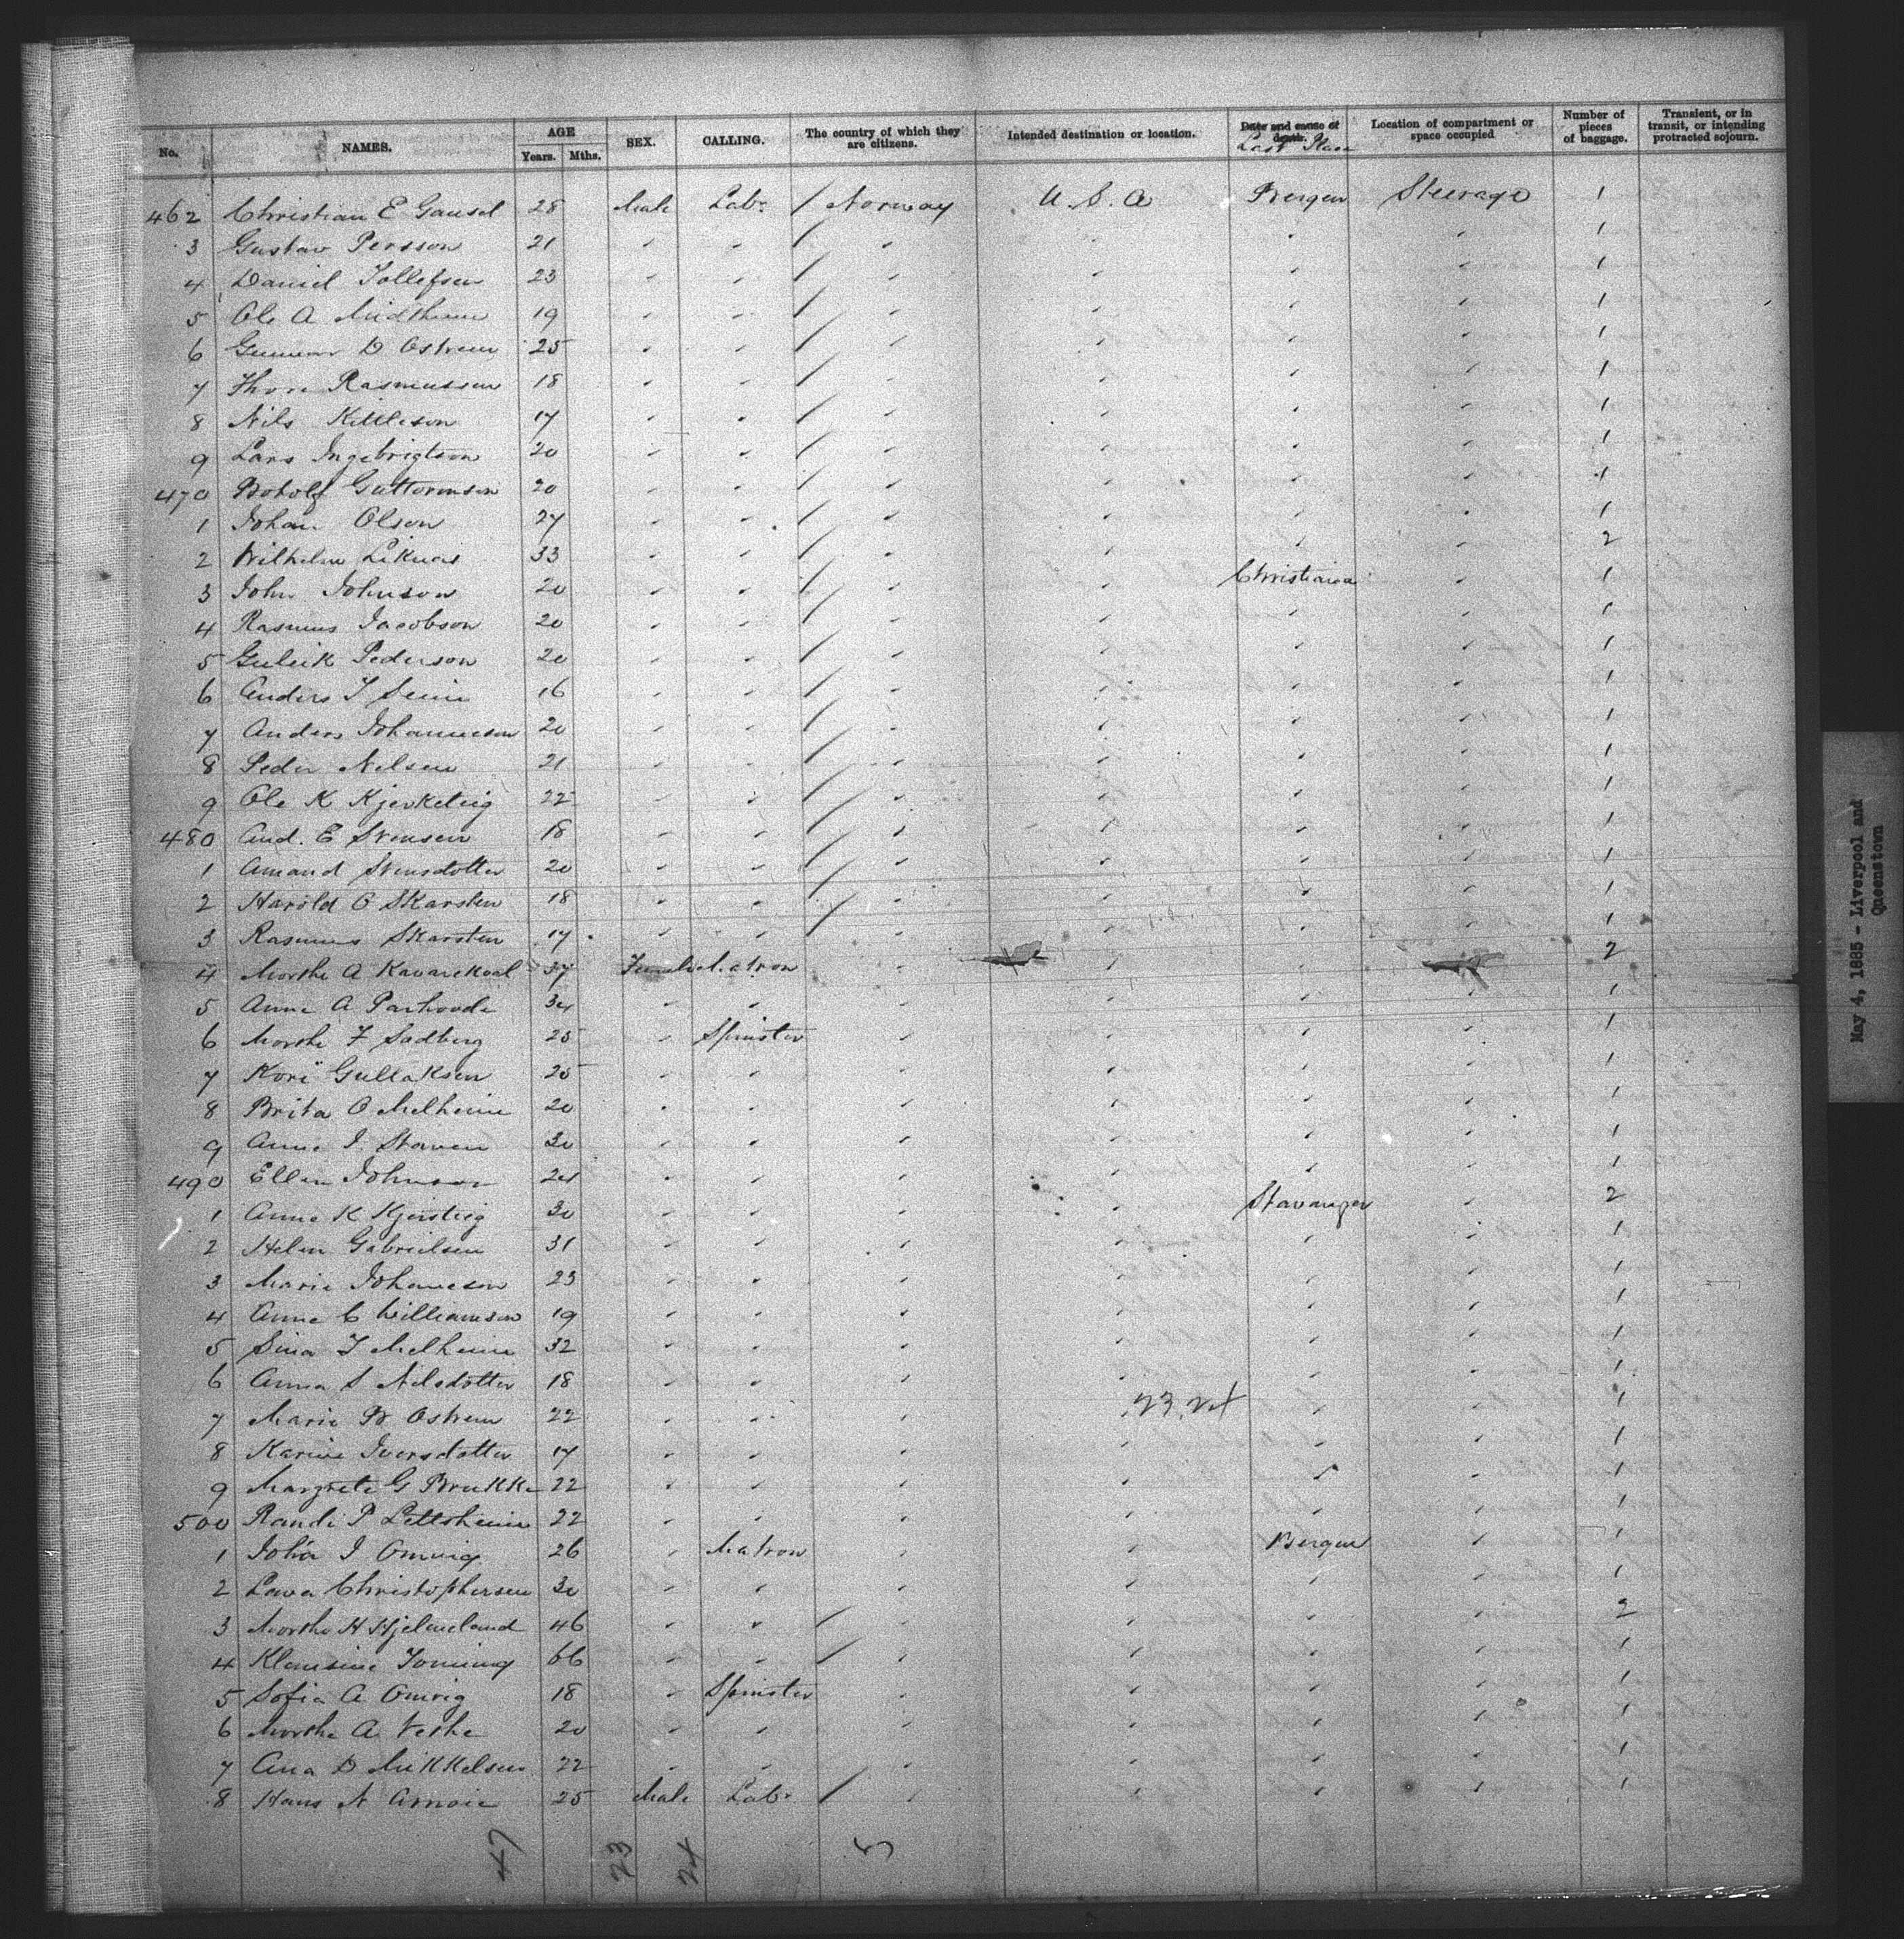 No. NAMES. AGE Years. Mths. SEX. CALLING. The country of which they are citizens. Intended destination or location. Date and cause of death. Last Place Location of compartment or space occupied Number of pieces of baggage. Transient, or in transit, or intending protracted sojourn.
462 Christian E Gausel 28 Male Labr / Norway U.S.A Bergen Steerage 1
3 Gustav Persson 21 " " / " " " " 1
4 Daniel Tollefsen 23 " " / " " " " 1
5 Ole A Midtheim 19 " " / " " " " 1
6 Gunnar D Ostrem 25 " " / " " " " 1
7 Thore Rasmussen 18 " " / " " " " 1
8 Nils Kittleson 17 " " / " " " " 1
9 Lars Ingebrigtson 20 " " / " " " " 1
470 Botolf Guttormsen 20 " " / " " " " 1
1 Johan Olson 27 " " / " " " " 1
2 Wilhelm Liknes 33 " " / " " " " 2
3 John Johnson 20 " " / " " Christiania " 1
4 Rasmus Jacobson 20 " " / " " " " 1
5 Guleik Pederson 20 " " / " " " " 1
6 Anders T 16 " " / " " " " 1
7 Anders Johanneson 20 " " / " " " " 1
8 Peder Nelsen 21 " " / " " " " 1
9 Ole K Kjerketeig 22 " " / " " " " 1
480 And. E Svensen 18 " " / " " " " 1
1 Amand Svensdotter 20 " " / " " " " 1
2 Harold O Skarsten 18 " " / " " " " 1
3 Rasmus Skarsten 17 " " / " " " " 1
4 Marthe A 37 Female Matron " " " " 2
5 Anne A 34 " " " " " " 1
6 Marthe F Sadberg 25 " Spinster " " " " 1
7 Kori Gullaksen 25 " " " " " " 1
8 Brita O Melheim 20 " " " " " " 1
9 Anne I. Staven 30 " " " " " " 1
490 Ellen Johnson 21 " " " " " " 1
1 Anne K 30 " " " " Stavanger " 2
2 Helen Gabrielsen 31 " " " " " " 1
3 Marie Johaneson 23 " " " " " " 1
4 Anne C Williamson 19 " " " " " " 1
5 Sina T Melheim 32 " " " " " " 1
6 Anna S Nilsdotter 18 " " " " " " 1
7 Marie B Ostrem 22 " " " 23.24 " " 1
8 Karine Iversdotter 17 " " " " " " 1
9 Margrete G Brekke 22 " " " " " " 1
500 Randi P 22 " " " " " " 1
1 Johá I Omvig 26 " Matron " " Bergen " 1
2 Lava Christophersen 30 " " " " " " 1
3 Marthe H Hjelmeland 46 " " / " " " " 2
4 Klausine 66 " " / " " " " 1
5 Sofia A Omvig 18 " Spinster " " " " 1
6 Marthe A 20 " " " " " " 1
7 Ana D Mikkelsen 22 " " " " " " 1
8 Hans N 25 Male Labr / " " " " 1
47 23 24 5
May 4, 1885 - Liverpool and
Queenstown